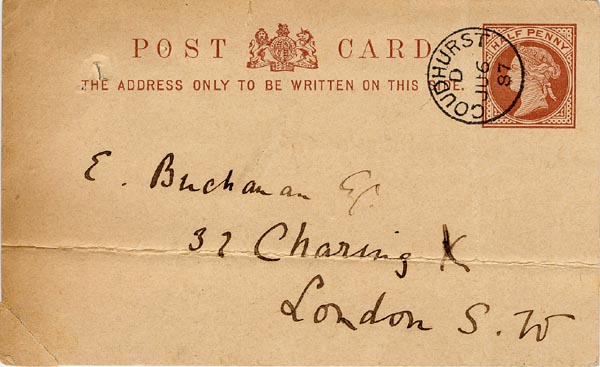 POST CARD
THE ADDRESS ONLY TO BE WRITTEN ON THIS SIDE.
HALF PENNY
GOUDHURST
D
JU 6
87
E. Buchanan Esq.
32 Charing X
London S.W